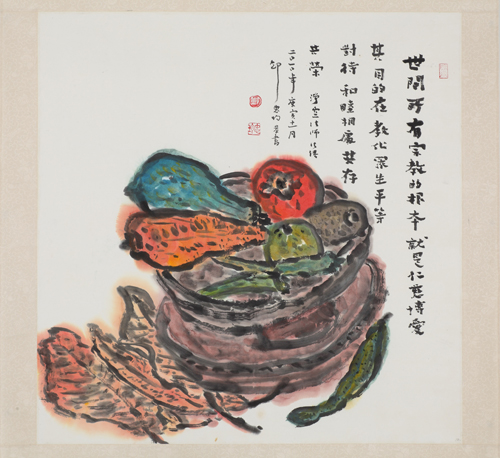 世間所有宗教的根本就是仁慈博愛
其目的在教化眾生平等
對待和睦相處共存
共榮 淨空法師法語
二〇一〇年庚寅十一月